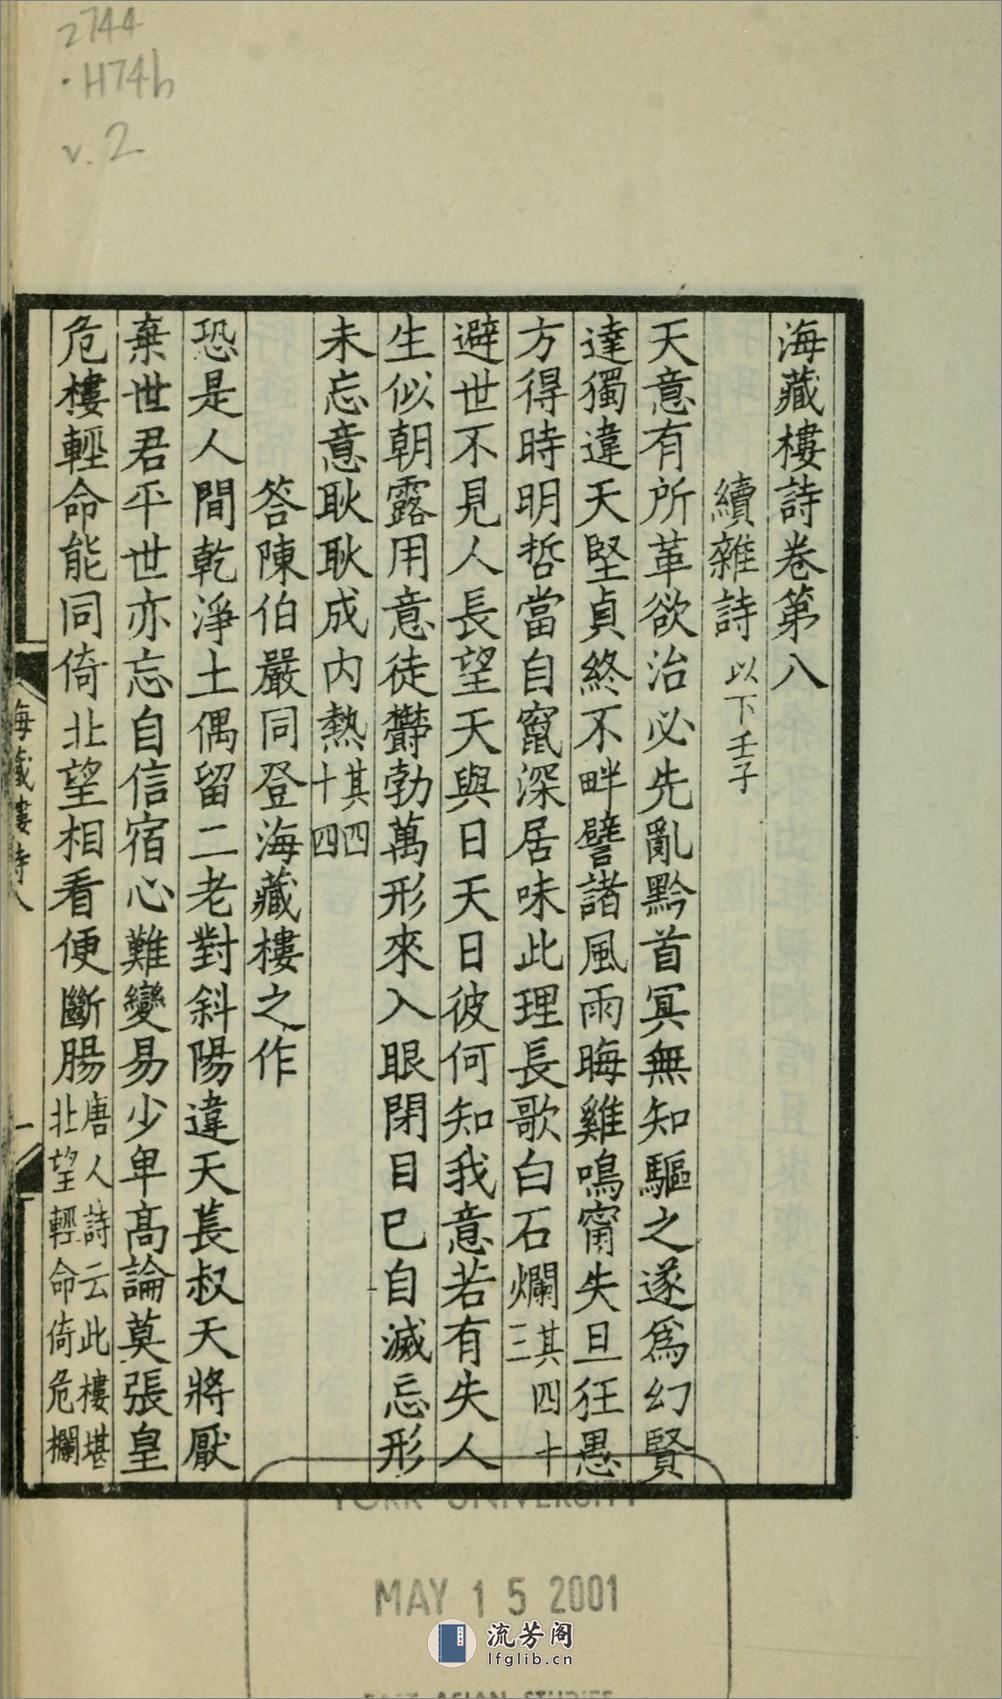 2744
.H74b
v.2
海藏樓詩卷第八
續雜詩 以下壬子
天意有所革欲治必先亂黔首冥無知驅之遂爲幻賢
達獨違天堅貞終不畔譬諸風雨晦雞鳴甯失旦狂愚
方得時明哲當自竄深居味此理長歌白石爛 其四十三
避世不見人長望天與日天日彼何知我意若有失人
生似朝露用意徒欝勃萬形來入眼閉目已自滅忘形
未忘意耿耿成內熱 其四十四
答陳伯嚴同登海藏樓之作
恐是人間乾淨土偶留二老對斜陽違天萇叔天將厭
棄世君平世亦忘自信宿心難變易少卑高論莫張皇
危樓輕命能同倚北望相看便斷腸 唐人詩云此樓堪北望輕命倚危欄
海藏樓詩八
一
YORK UNIVERSITY
MAY 15 2001
EAST ASIAN STUDIES
流芳阁
lfglib.cn